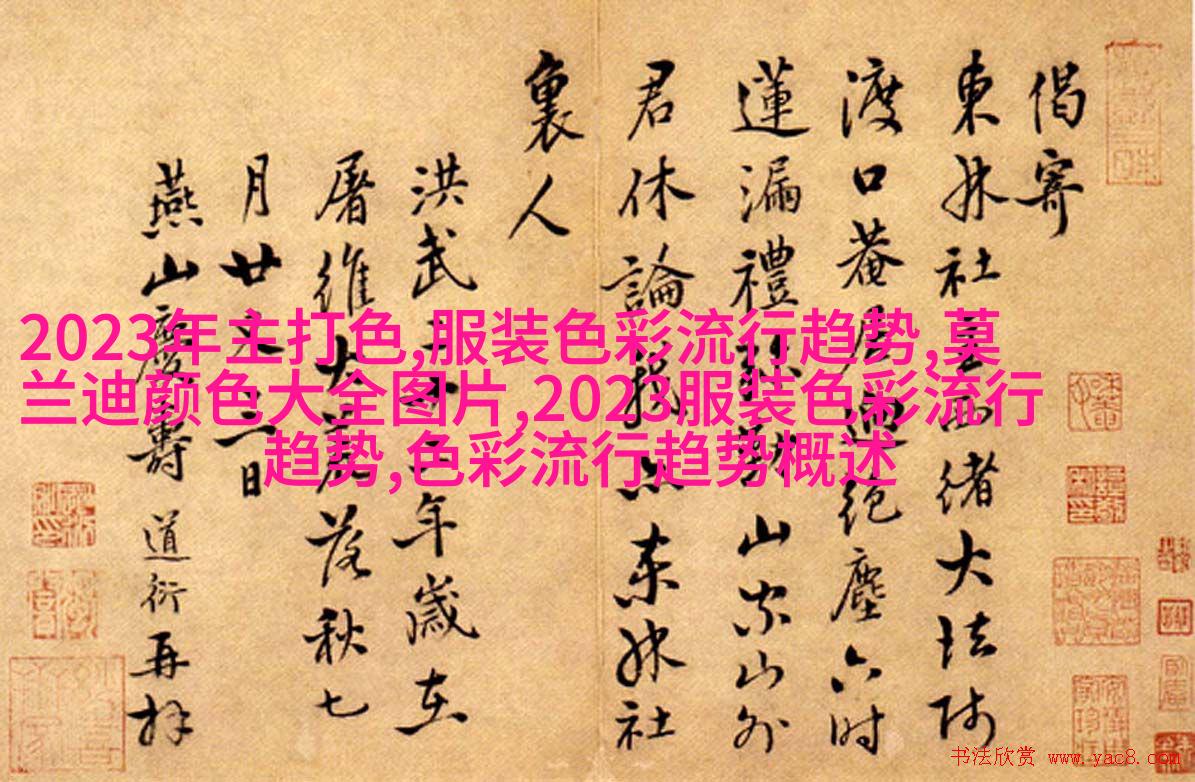 偈寄
東林社西緒大法師
渡口菴居迥絕塵六時
蓮漏禮山家山外
君休論東林社
裏人
洪武二年歲在
屠維大荒落秋七
月廿二日
燕山慶壽道衍再拜
2023年主打色,服装色彩流行趋势,莫
兰迪颜色大全图片,2023服装色彩流行
趋势,色彩流行趋势概述
书法欣赏 www.yac8.com